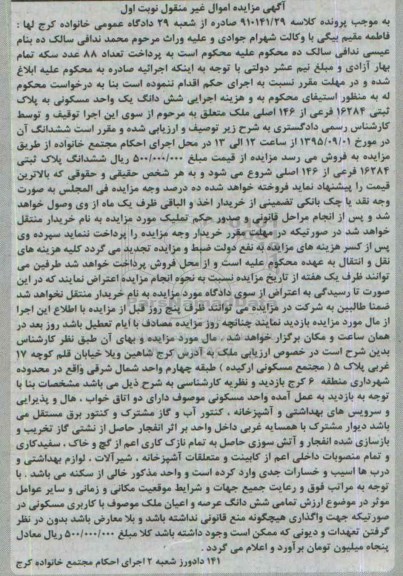 آگهی مزایده اموال غیر منقول نوبت اول
به موجب پرونده کلاسه ۹۱۰۱۴۱/۲۹ صادره از شعبه ۲۹ دادگاه عمومی خانواده کرج لها :
فاطمه مقیم بیگی با وکالت شهرام جوادی و علیه وراث مرحوم محمد ندافی سالک ده بنام
عیسی ندافی سالک ده محکوم علیه محکوم است به پرداخت تعداد ۸۸ عدد سکه تمام
بهار آزادی و مبلغ نیم عشر دولتی با توجه به اینکه اجرائیه صادره به محکوم علیه ابلاغ
شده و در مهلت مقرر نسبت به اجرای حکم اقدام ننموده است بنا به درخواست محکوم
له به منظور استیفای محکوم به و هزینه اجرایی شش دانگ یک واحد مسکونی به پلاک
ثبتی ۱۶۲۸۴ فرعی از ۱۴۶ اصلی ملک متعلق به مرحوم از سوی این اجرا توقیف و توسط
کارشناس رسمی دادگستری به شرح زیر توصیف و ارزیابی شده و مقرر است ششدانگ آن
در مورخ ۱۳۹۵/۰۹/۰۱ از ساعت ۱۲ الی ۱۳ در محل اجرای احکام مجتمع خانواده از طریق
مزایده به فروش می رسد مزایده از قیمت مبلغ ۵۰۰/۰۰۰/۰۰۰ ریال ششدانگ پلاک ثبتی
۱۶۲۸۴ فرعی از ۱۴۶ اصلی شروع می شود و به هر شخص حقیقی و حقوقی که بالاترین
قیمت را پیشنهاد نماید فروخته خواهد شده ده درصد وجه مزایده فی المجلس به صورت
وجه نقد یا چک بانکی تضمینی از خریدار اخذ و الباقی ظرف یک ماه از وی وصول خواهد
شد و پس از انجام مراحل قانونی و صدور حکم تملیک مورد مزایده به نام خریدار منتقل
خواهد شد در صورتیکه در مهلت مقرر خریدار وجه مزایده را پرداخت ننماید سپرده وی
پس از کسر هزینه های مزایده به نفع دولت ضبط و مزایده تجدید می گردد کلیه هزینه های
نقل و انتقال به عهده محکوم علیه است و از محل فروش پرداخت خواهد شد طرفین می
توانند ظرف یک هفته از تاریخ مزایده نسبت به نحوه انجام مزایده اعتراض نمایند که در این
صورت تا رسیدگی به اعتراض از سوی دادگاه مورد مزایده به نام خریدار منتقل نخواهد شد
ضمنا طالبین به شرکت در مزایده می توانند ظرف پنج روز قبل از مزایده با اطلاع این اجرا
از مال مورد مزایده بازدید نمایند چنانچه روز مزایده مصادف با ایام تعطیل باشد روز بعد در
همان ساعت و مکان برگزار خواهد شد . مال مورد مزایده و بهای آن طبق نظر کارشناس
بدین شرح است در خصوص ارزیابی ملک به آدرس کرج شاهین ویلا خیابان قلم کوچه ۱۷
غربی پلاک ۵ ( مجتمع مسکونی ارکیده ) طبقه چهارم واحد شمال شرقی واقع در محدوده
شهرداری منطقه ۶ کرج بازدید و نظریه کارشناسی به شرح ذیل می باشد مشخصات بنا با
توجه به بازدید به عمل آمده واحد مسکونی موصوف دارای دو اتاق خواب ، هال و پذیرایی
و سرویس های بهداشتی و آشپزخانه ، کنتور آب و گاز مشترک و کنتور برق مستقل می
باشد دیوار مشترک با همسایه غربی داخل واحد بر اثر انفجار حاصل از نشتی گاز تخریب و
بازسازی شده انفجار و آتش سوزی حاصل به تمام نازک کاری اعم از گچ و خاک ، سفیدکاری
و تمام منصوبات داخلی اعم از کابینت و متعلقات آشپزخانه ، شیرآلات ، لوازم بهداشتی و
درب ها آسیب و خسارات جدی وارد کرده است و واحد مذکور خالی از سکنه می باشد . با
توجه به مراتب فوق و رعایت جمیع جهات و شرایط موقعیت مکانی و زمانی و سایر عوامل
موثر در موضوع ارزش تمامی شش دانگ عرصه و اعیان ملک موصوف با کاربری مسکونی در
صورتیکه جهت واگذاری هیچگونه منع قانونی نداشته باشد و بلا معارض باشد بدون در نظر
گرفتن تعهدات و دیونی که ممکن است وجود داشته باشد کلا مبلغ ۵۰۰/۰۰۰/۰۰۰ ریال معادل
پنجاه میلیون تومان برآورد و اعلام می گردد .
۱۴۱ دادورز شعبه ۲ اجرای احکام مجتمع خانواده کرج